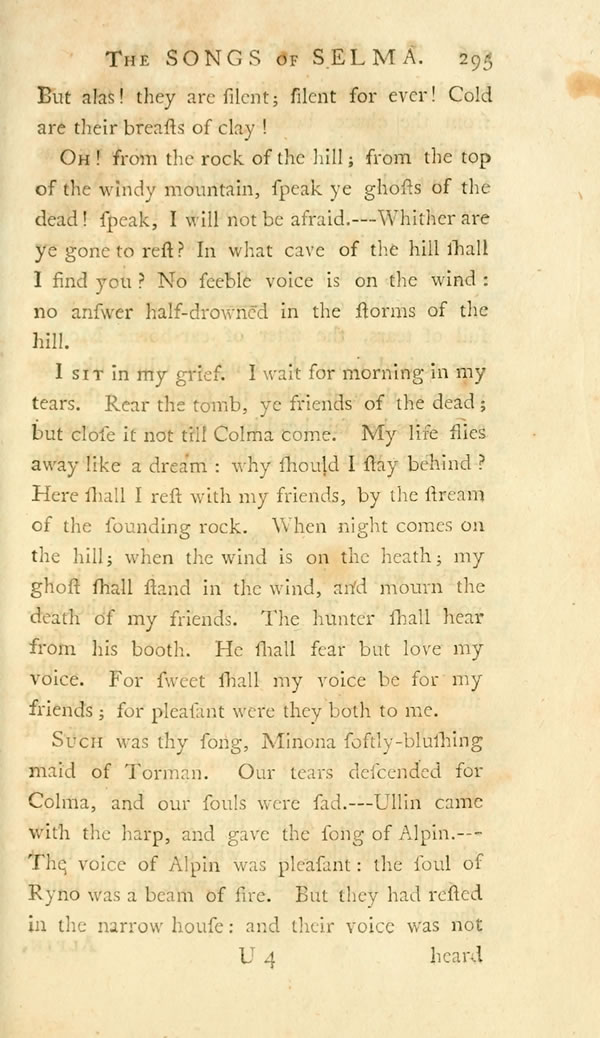 The SONGS of SELMA. 295
But alas! they are ſilent; ſilent for ever! Cold
are their breaſts of clay!
Oh! from the rock of the hill; from the top
of the windy mountain, ſpeak ye ghoſts of the
dead! ſpeak, I will not be afraid.---Whither are
ye gone to reſt? In what cave of the hill ſhall
I find you? No feeble voice is on the wind:
no anſwer half-drowned in the ſtorms of the
hill.
I sit in my grief. I wait for morning in my
tears. Rear the tomb, ye friends of the dead;
but cloſe it not till Colma come. My life flies
away like a dream: why ſhould I ſtay behind?
Here ſhall I reſt with my friends, by the ſtream
of the ſounding rock. When night comes on
the hill; when the wind is on the heath; my
ghoſt ſhall ſtand in the wind, and mourn the
death of my friends. The hunter ſhall hear
from his booth. He ſhall fear but love my
voice. For ſweet ſhall my voice be for my
friends; for pleaſant were they both to me.
Such was thy ſong, Minona ſoftly-bluſhing
maid of Torman. Our tears deſcended for
Colma, and our ſouls were ſad.---Ullin came
with the harp, and gave the ſong of Alpin.---
The voice of Alpin was pleaſant: the ſoul of
Ryno was a beam of fire. But they had reſted
in the narrow houſe: and their voice was not
U 4 heard